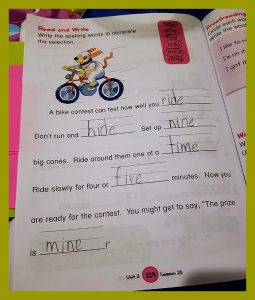 Read and Write
Write the spelling words to complete
the selection.
hide
mine
A bike contest can test how well you ride
Don't run and hide Set up nine
big cones. Ride around them one at a time
Ride slowly for four or five minutes. Now you
are ready for the contest. You might get to say, "The prize
is mine
Unit 5 114 Lesson 25
Proofreading
I like to
I'm on it
I got it